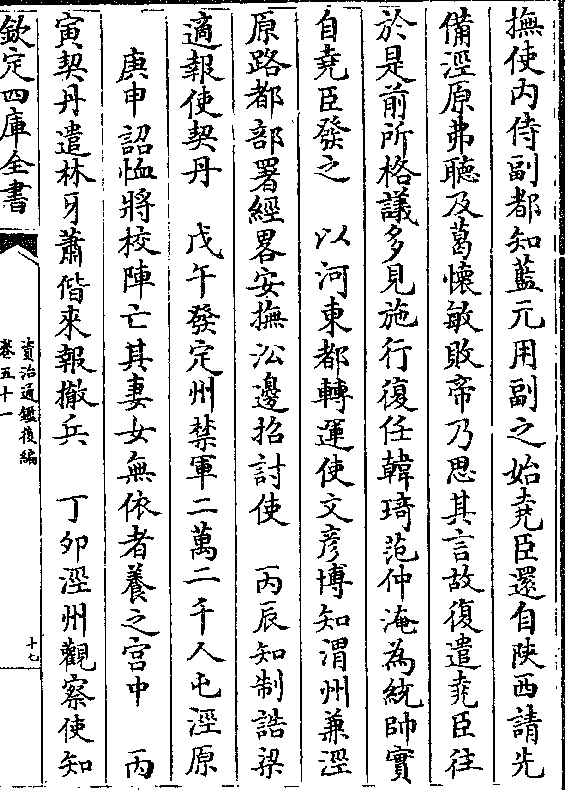 撫使内侍副都知藍元用副之始堯臣還自陝西請先
備涇原弗聽及葛懷敏敗帝乃思其言故復遣堯臣往
於是前所格議多見施行復任韓琦范仲淹為統帥實
自堯臣發之　以河東都轉運使文彦博知渭州兼涇
原路都部署經畧安撫㳂邊招討使　丙辰知制誥梁
適報使契丹　戊午發定州禁軍二萬二千人屯涇原
庚申詔恤將校陣亡其妻女無依者養之宫中　丙
寅契丹遣林牙蕭偕來報撤兵　丁夘涇州觀察使知
欽定四庫全書
資治通鑑後編
卷五十一
十七